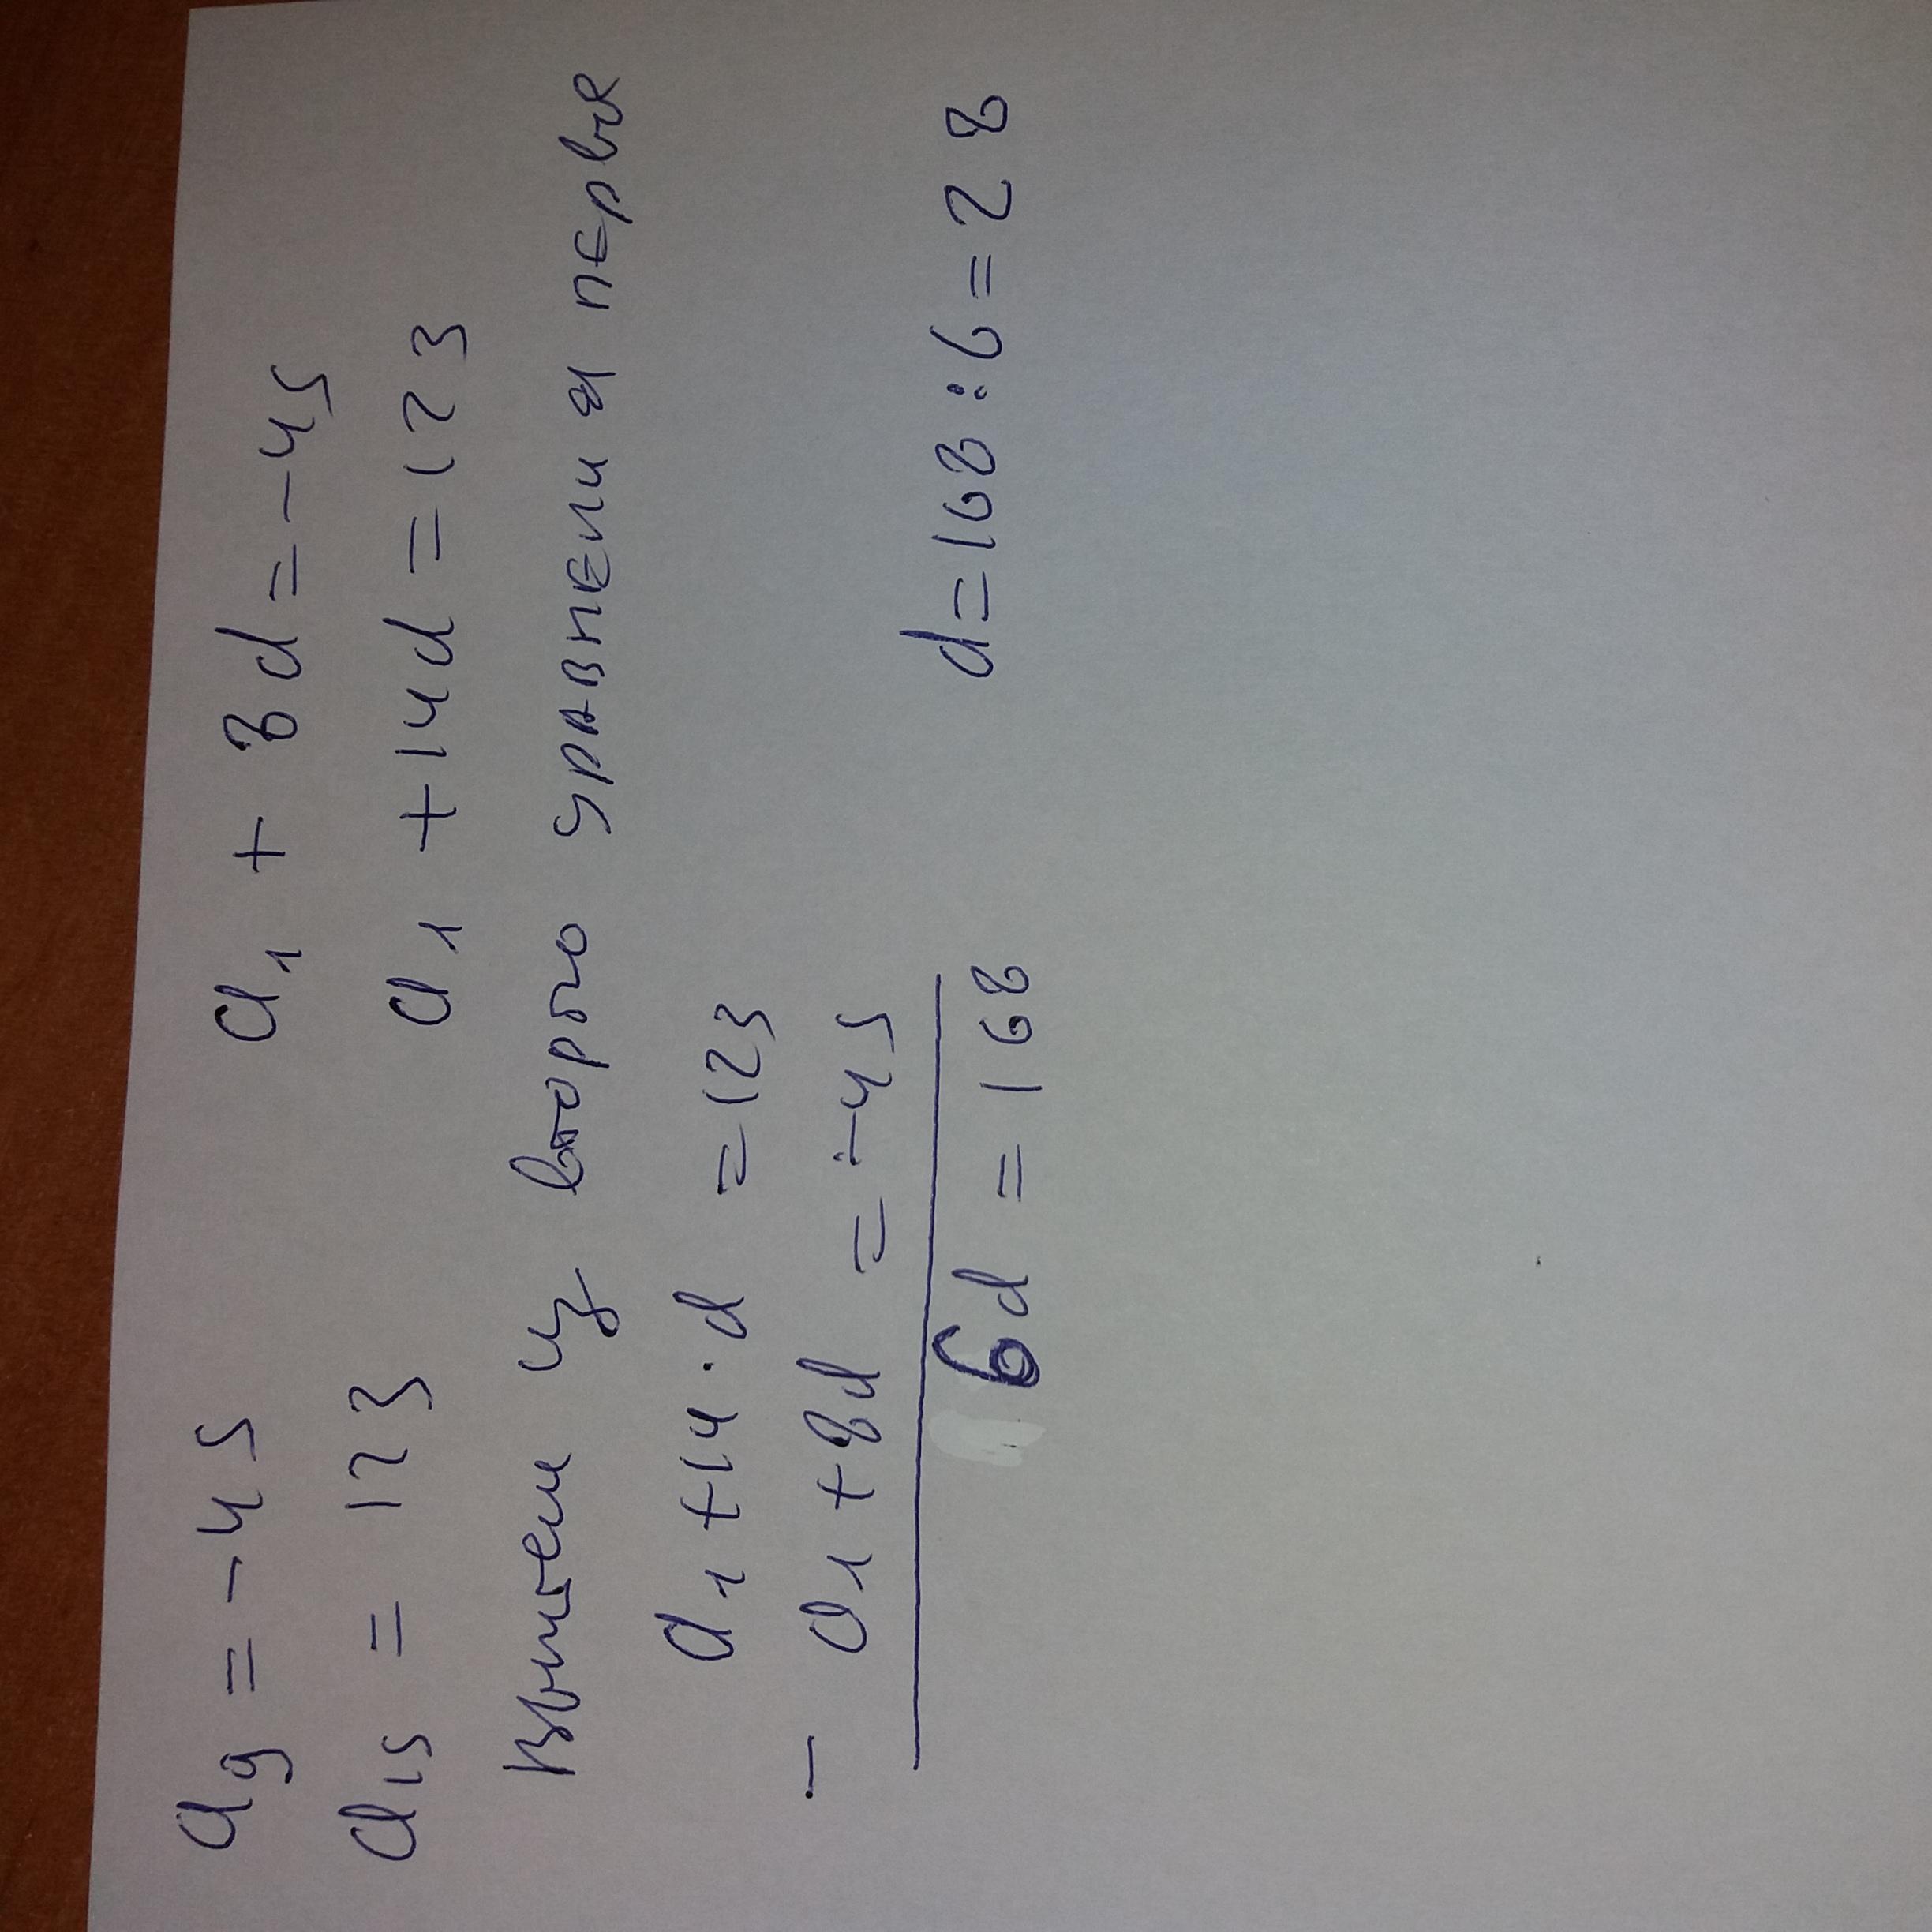 a₉ = -45 a₁ + 8d = -45
a₁₅ = 123 a₁ + 14d = 123
Вычтем из второго уравнения первое
a₁ + 14 · d = 123
– a₁ + 8d = -45
6d = 168 d = 168 : 6 = 28